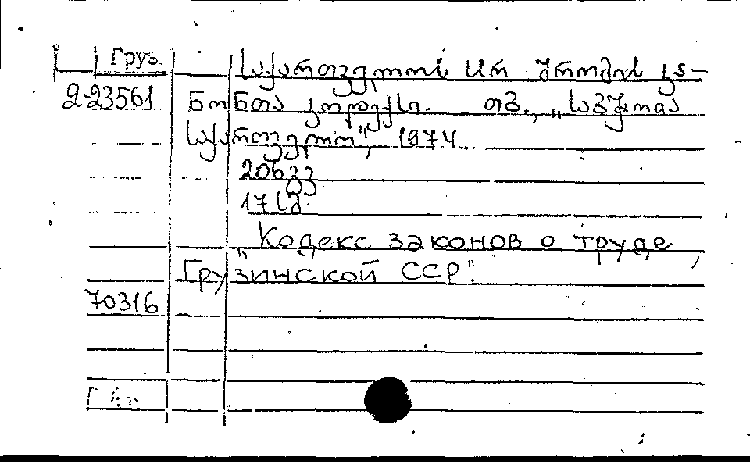 Груз.
საქართველოს სსრ შრომის კა-
2-23561 ნონთა კოდექსი. თბ., „საბჭოთა
საქართველო", 1974.
206 გვ
17 სმ.
„Кодекс законов о труде
Грузинской ССР".
70316